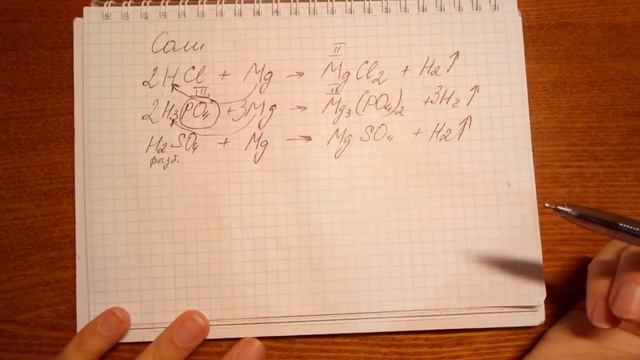 Соли
II
2HCl + Mg → MgCl₂ + H₂↑
III II
2H₃PO₄ + 3Mg → Mg₃(PO₄)₂ + 3H₂↑
H₂SO₄ + Mg → MgSO₄ + H₂↑
разб.